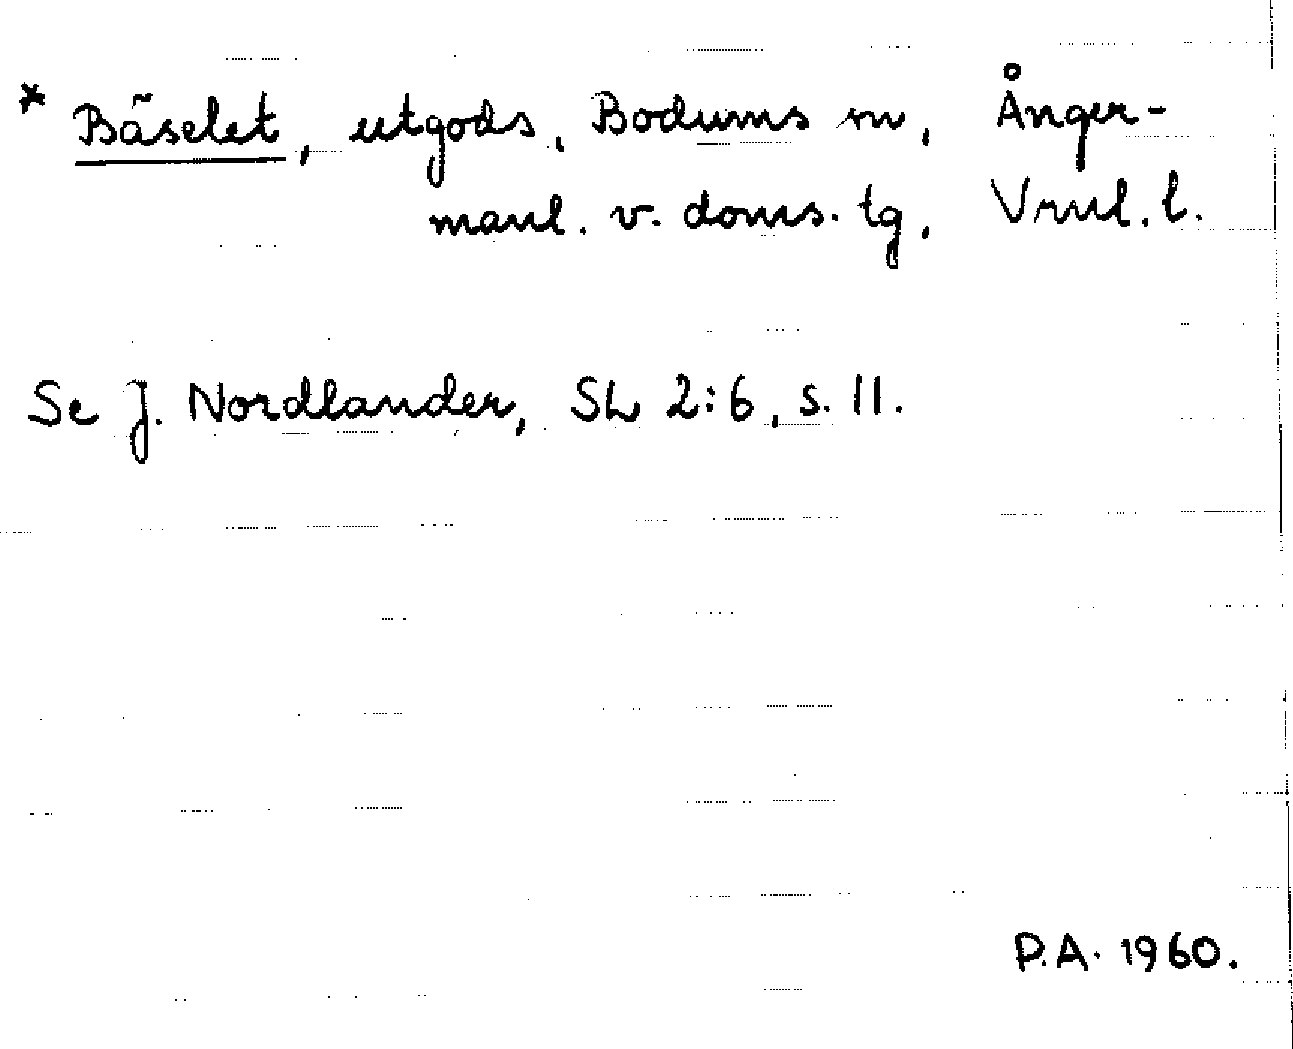 * Bäselet, utgods, Bodums sn, Ånger-
manl. v. doms. tg, Vrnl. l.
Se J. Nordlander, SL 2:6, s. 11.
P.A. 1960.